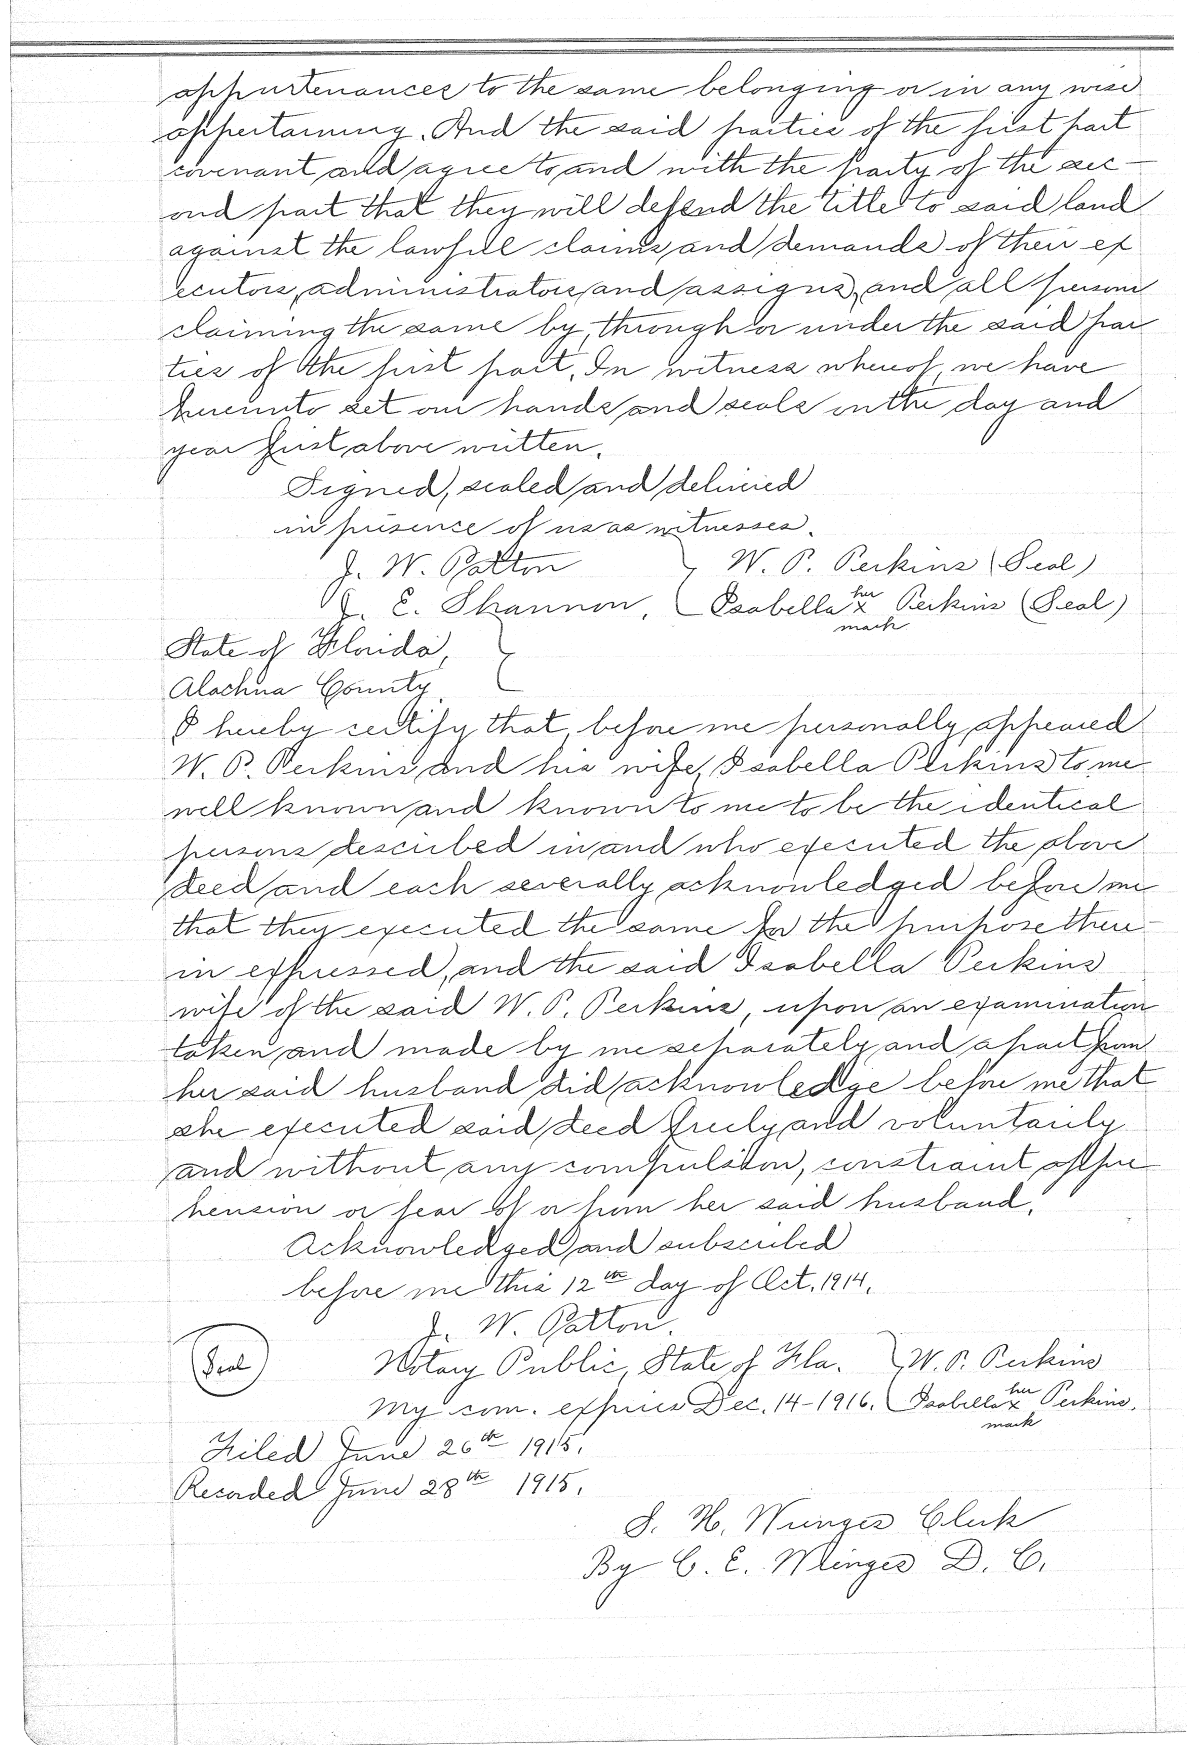 appurtenances to the same belonging or in any wise
appertaining. And the said parties of the first part
covenant and agree to and with the party of the sec-
ond part that they will defend the title to said land
against the lawfull claims and demands of their ex
ecutors, administrators and assigns, and all persons
claiming the same by, through or under the said par
ties of the first part. In witness whereof, we have
hereunto set our hands and seals on the day and
year first above written.
Signed, sealed and delivered
in presence of us as witnesses.
J. W. Patton } W. P. Perkins (Seal)
J. E. Shannon, { Isabella her x mark Perkins (Seal)
State of Florida,
Alachua County.
I hereby certify that, before me personally appeared
W. P. Perkins and his wife, Isabella Perkins to me
well known and known to me to be the identical
persons described in and who executed the above
deed and each severally acknowledged before me
that they executed the same for the purpose there-
in expressed, and the said Isabella Perkins
wife of the said W. P. Perkins, upon an examination
taken and made by me separately and apart from
her said husband did acknowledge before me that
she executed said deed freely and voluntarily
and without any compulsion, constraint appre-
hension or fear of or from her said husband.
Acknowledged and subscribed
before me this 12th day of Oct. 1914.
J. W. Patton.
(Seal) Notary Public, State of Fla. } W. P. Perkins
My com. expires Dec. 14-1916. { Isabella her x mark Perkins.
Filed June 26th 1915.
Recorded June 28th 1915.
S. H. Wienges Clerk
By C. E. Wienges D. C.